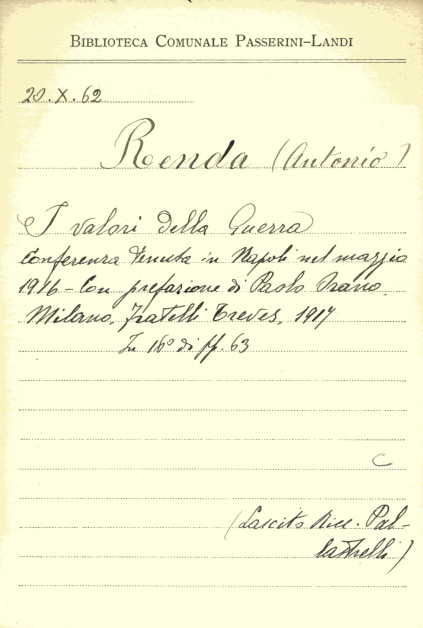 BIBLIOTECA COMUNALE PASSERINI-LANDI
20.X.62
Renda (Antonio)
I valori della Guerra
Conferenza tenuta in Napoli nel maggio
1916 - Con prefazione di Paolo Orano.
Milano, Fratelli Treves, 1917
In 16° di pp. 63
C
(Lascito Pal-
lastrelli)